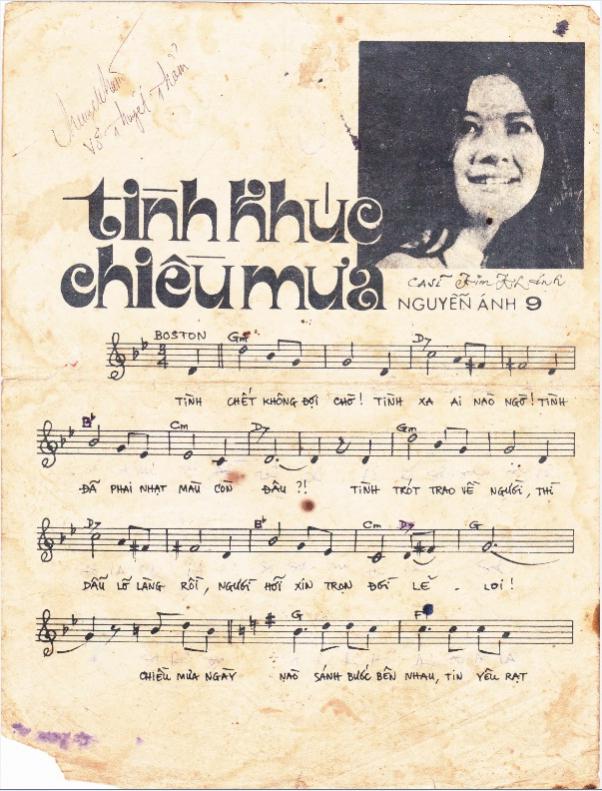 tình khúc
chiều mưa
CA SĨ Kim Khánh
NGUYỄN ÁNH 9
BOSTON Gm D7
3
4
TÌNH CHẾT KHÔNG ĐỢI CHỜ! TÌNH XA AI NÀO NGỜ! TÌNH
B♭ Cm D7 Gm
ĐÃ PHAI NHẠT MÀU CÒN ĐÂU ?! TÌNH TRÓT TRAO VỀ NGƯỜI, THÌ
D7 B♭ Cm D7 G
DẪU LỠ LÀNG RỒI, NGƯỜI HỠI XIN TRỌN ĐỜI LẺ - LOI!
G F
CHIỀU MƯA NGÀY NÀO SÁNH BƯỚC BÊN NHAU, TIN YÊU RẠT